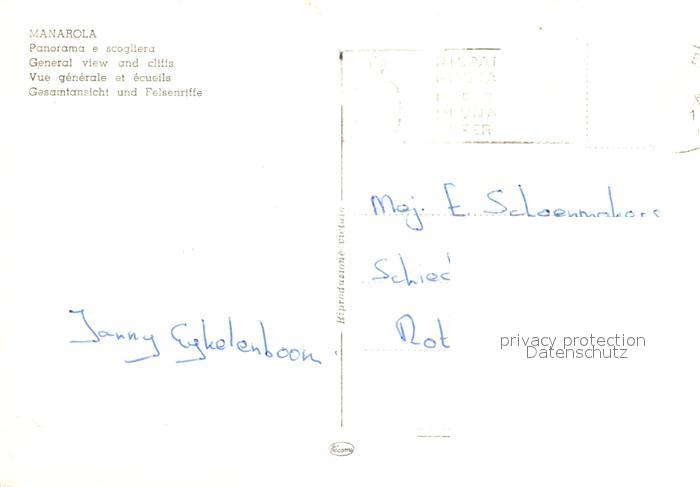 MANAROLA
Panorama e scogliera
General view and cliffs
Vue générale et écueils
Gesamtansicht und Felsenriffe
Riproduzione vietata
Mej. E. Schoenmakers
Schied
Rot
Janny Eykelenboom.
privacy protection
Datenschutz